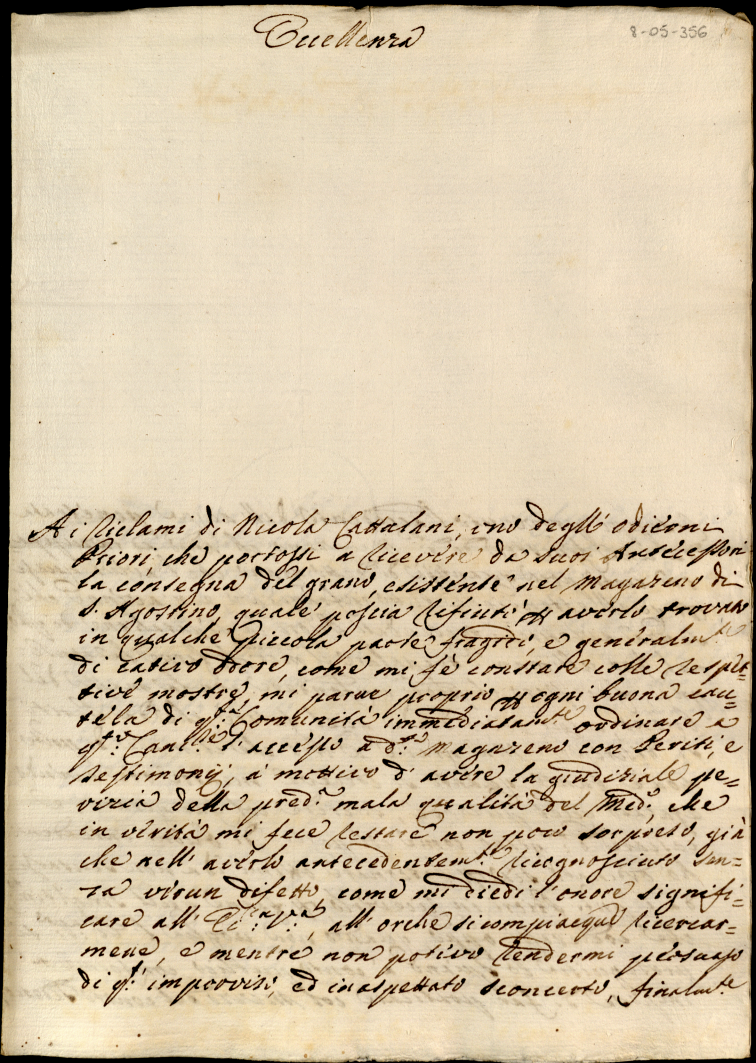 Eccellenza
8-05-356
Ai riclami di Nicola Cattalani, uno degl' odierni
Priori, che portossi a ricevere da suoi Antecessori
la consegna del grano, esistente nel Magazeno di
S. Agostino, quale poscia rifiutò p averlo trovato
in qualche piccola parte fragido, e generalm.te
di cativo odore, come mi fè constare colle respet=
tive mostre, mi parve proprio p ogni buona cau=
tela di q.ta Comunità immediatam.te ordinare a
q.to Canc.re l'accesso a d.to Magazeno con Periti, e
Testimonij, a mottivo d'avere la giudiziale pe=
rizia della pred.a mala qualità del Med.o, che
in verità mi fece restare non poco sorpreso, già
che nell' averlo antecedentem.te ricognosciuto sen=
za verun difetto, come mi diedi l'onore signifi=
care all' Ecc.a V.a, all' orche si compiacque ricercar=
mene, e mentre non potevo rendermi persuaso
di q.to improviso, ed inaspettato sconcerto, finalm.te